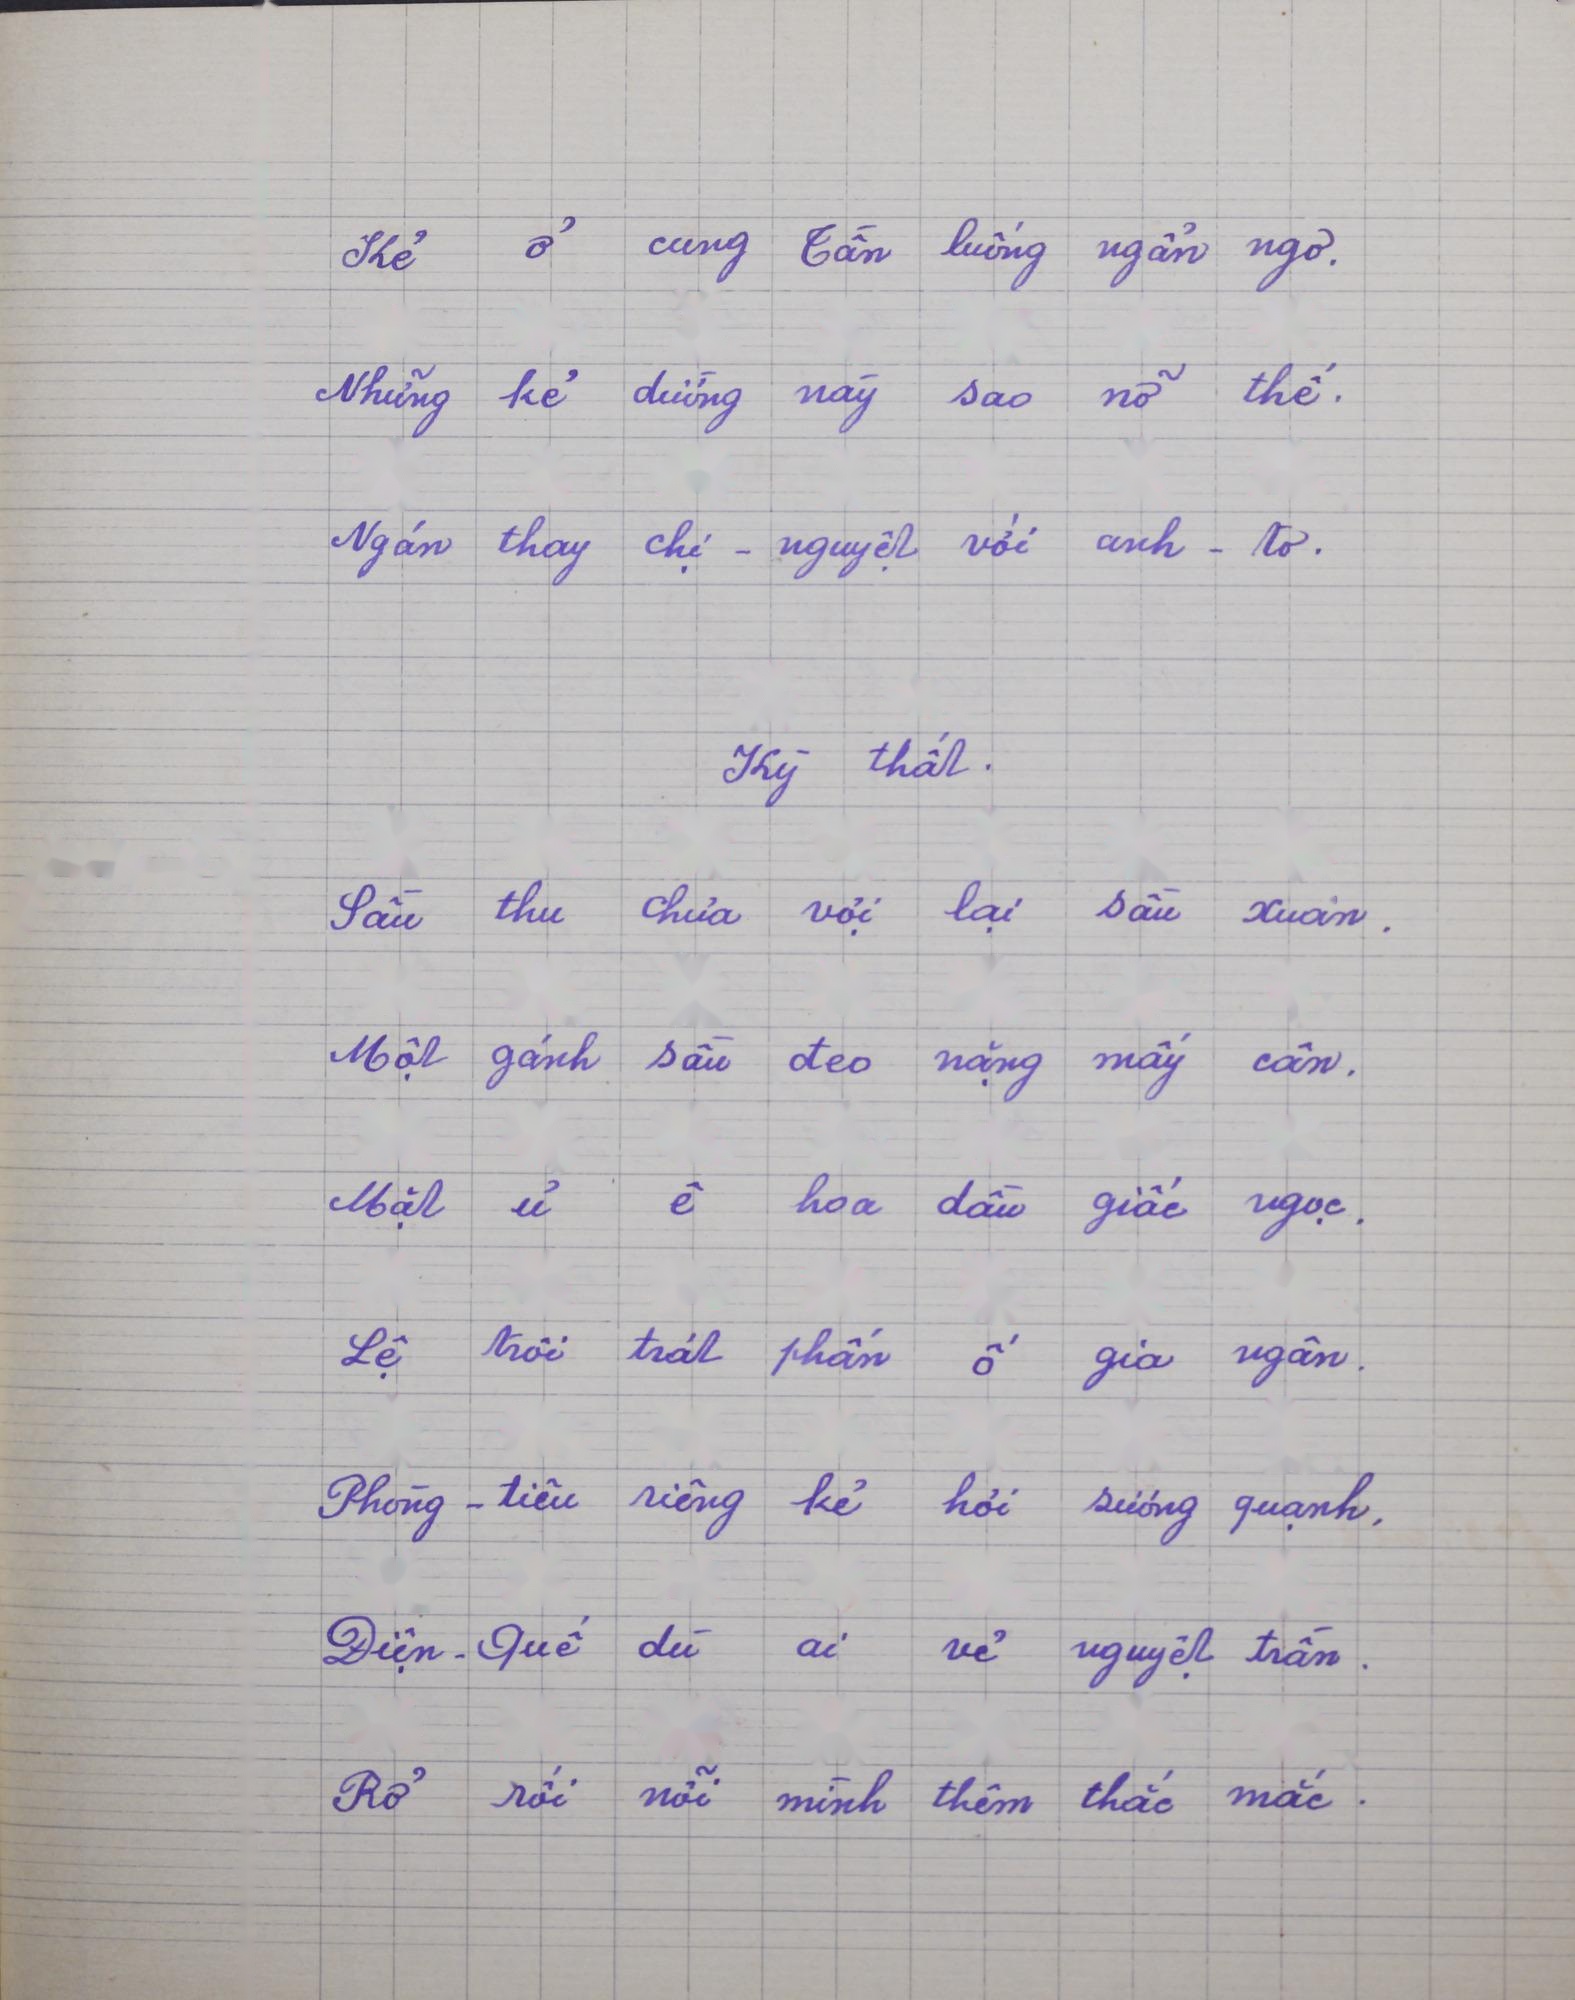 Kẻ ở cung Tần luống ngẩn ngơ.
Những kẻ dường này sao nỡ thế.
Ngán thay chị - nguyệt với anh - tơ.
Kỳ thất.
Sầu thu chưa vợi lại sầu xuân.
Một gánh sầu đeo nặng mấy cân.
Mặt ủ ê hoa dầu giấc ngọc.
Lệ trôi trát phấn ố gia ngân.
Phòng - tiêu riêng kẻ hơi sương quạnh.
Điện - Quế dù ai vẻ nguyệt trần.
Rở rói nỗi mình thêm thắc mắc.